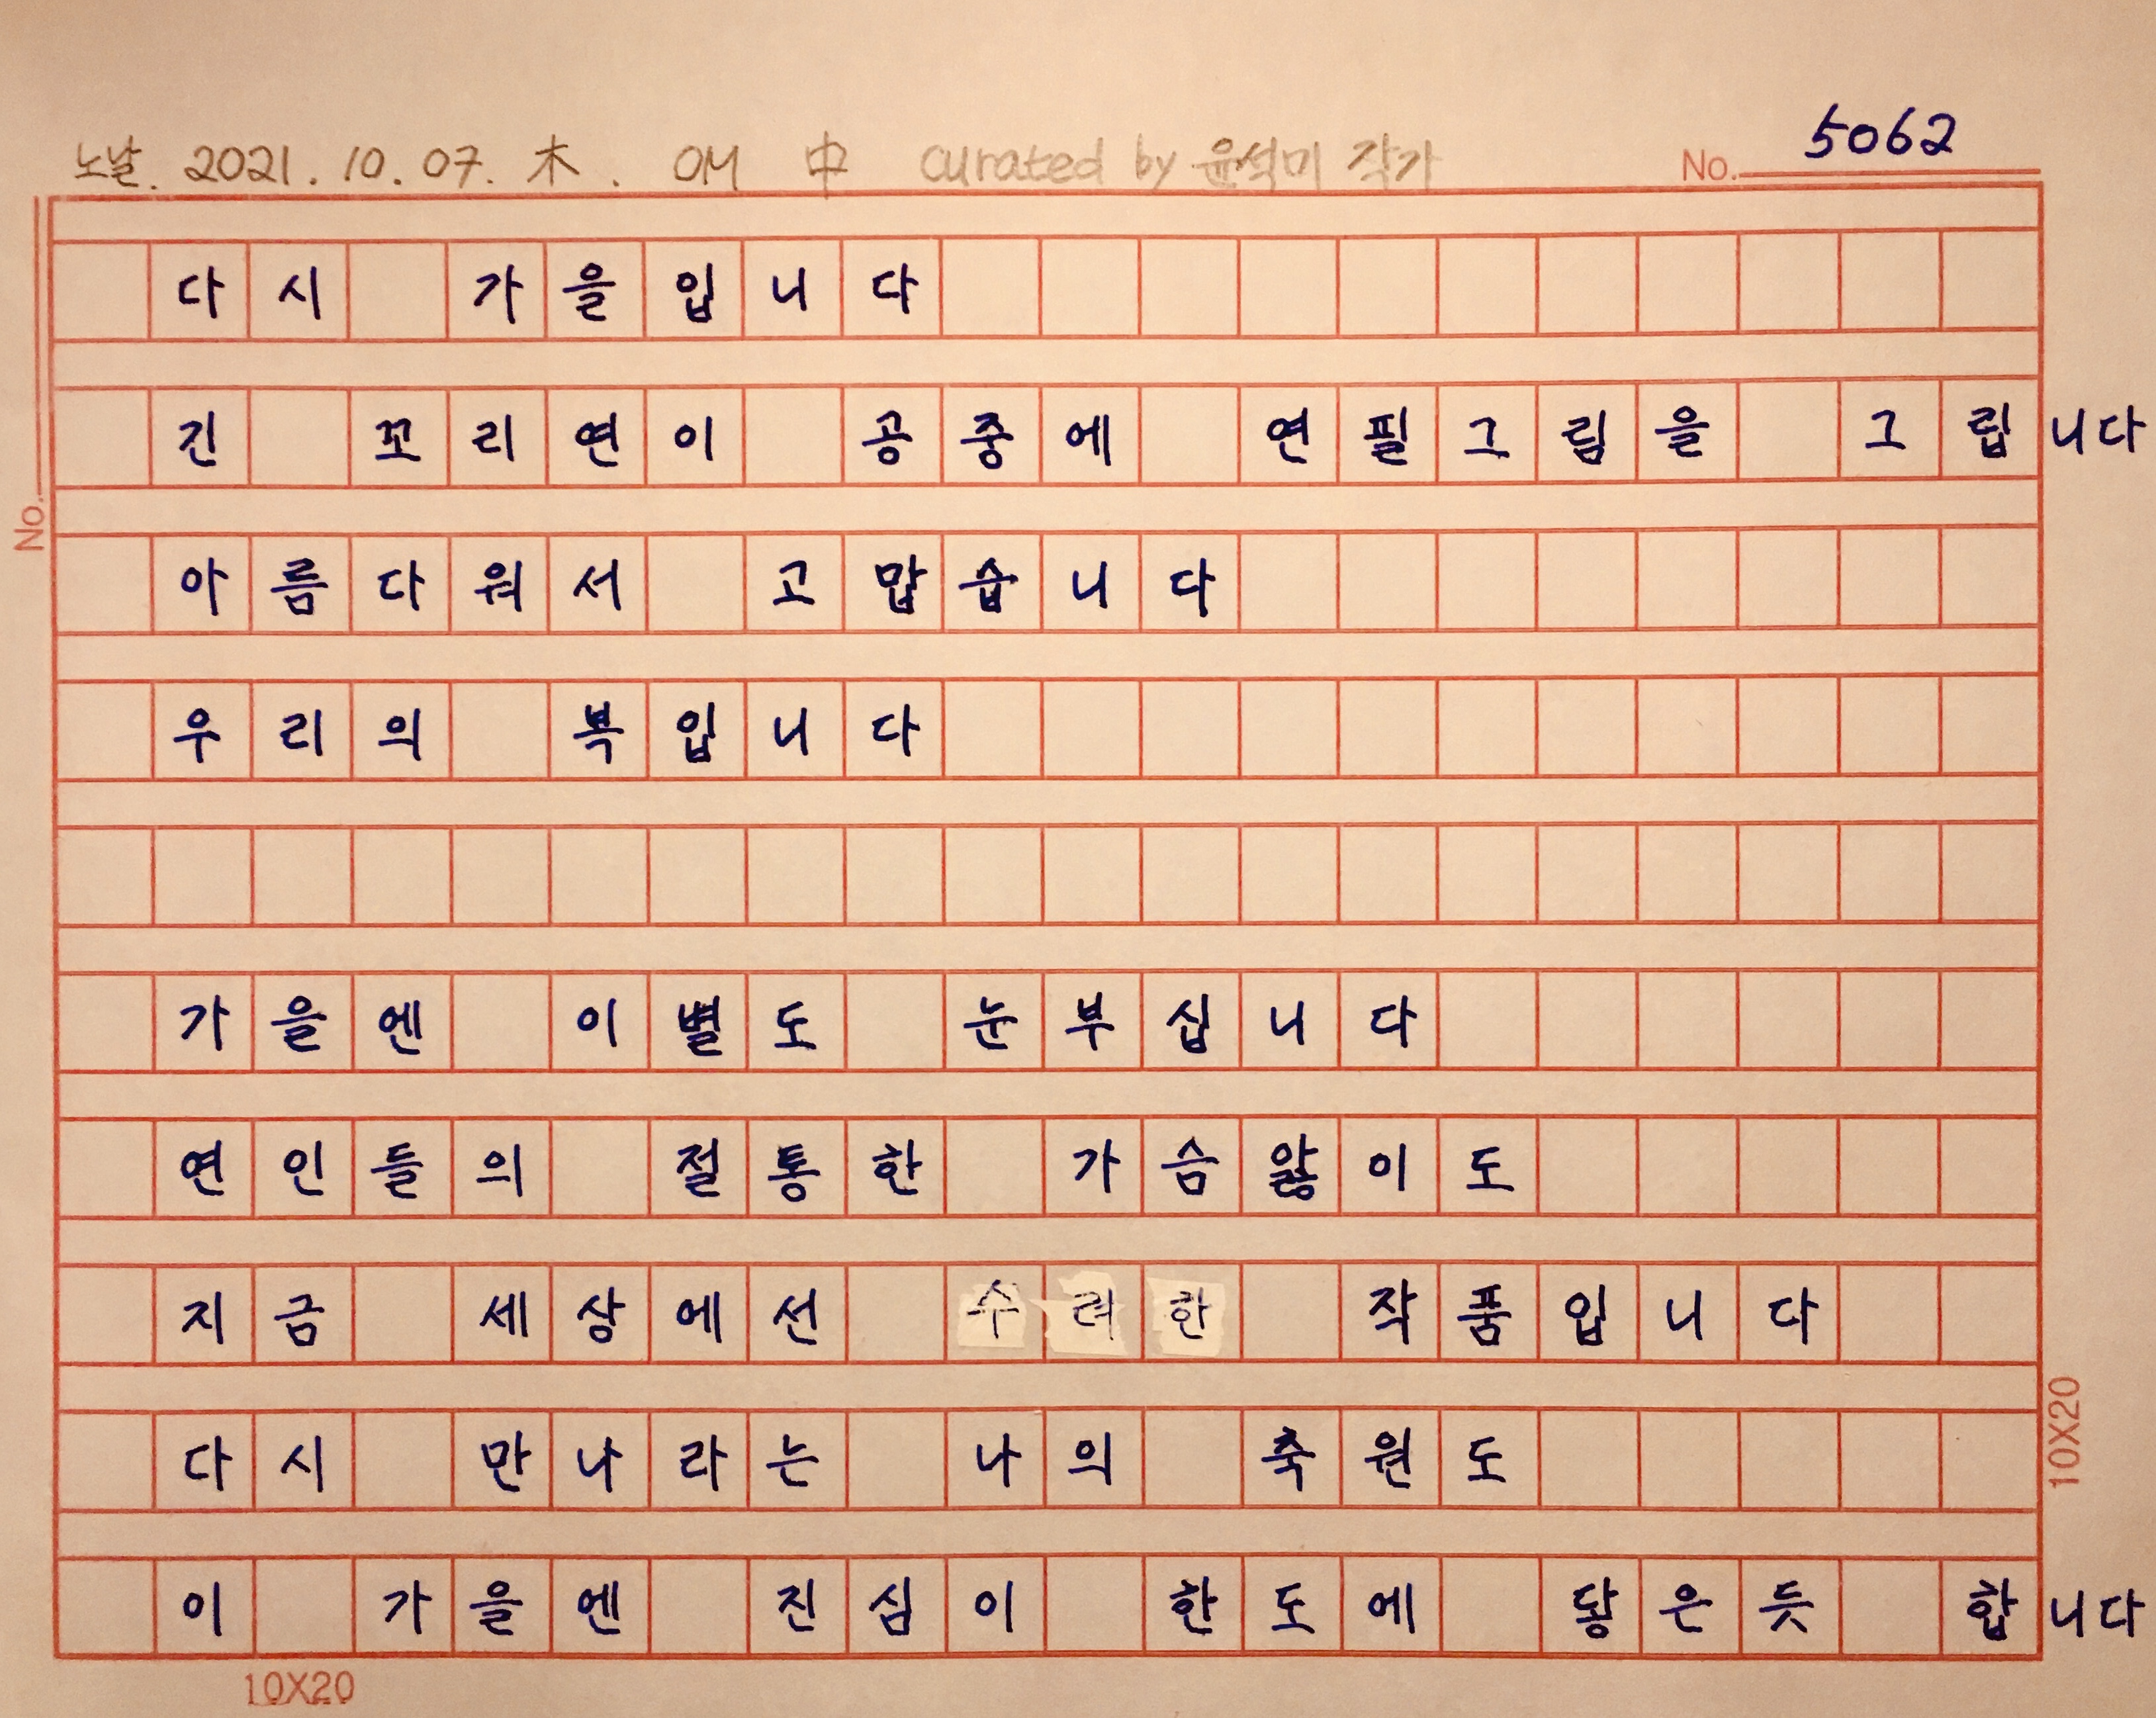 노날. 2021. 10. 07. 木. OM 中 curated by 윤석미 작가
No. 5062
다시 가을입니다
긴 꼬리연이 공중에 연필그림을 그립니다
아름다워서 고맙습니다
우리의 복입니다
가을엔 이별도 눈부십니다
연인들의 절통한 가슴앓이도
지금 세상에선 수려한 작품입니다
다시 만나라는 나의 축원도
이 가을엔 진심이 한도에 닿은듯 합니다
No.
10X20
10X20